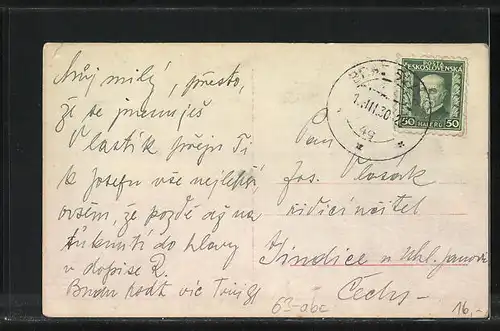 Můj milý, přesto,
že se jmenuješ
Vlastík přeju Ti
k Josefu vše nejlepší
ovšem, že pozdě až na
ťuknutí do hlavy
v dopise R.
Budu rád
POSTA
ČESKOSLOVENSKÁ
50 HALÉŘŮ 50
III.30
Pan
Jos. Vlasák
řídící učitel
Jindice u Uhl. Janovic
Čechy
63-abc
16,-